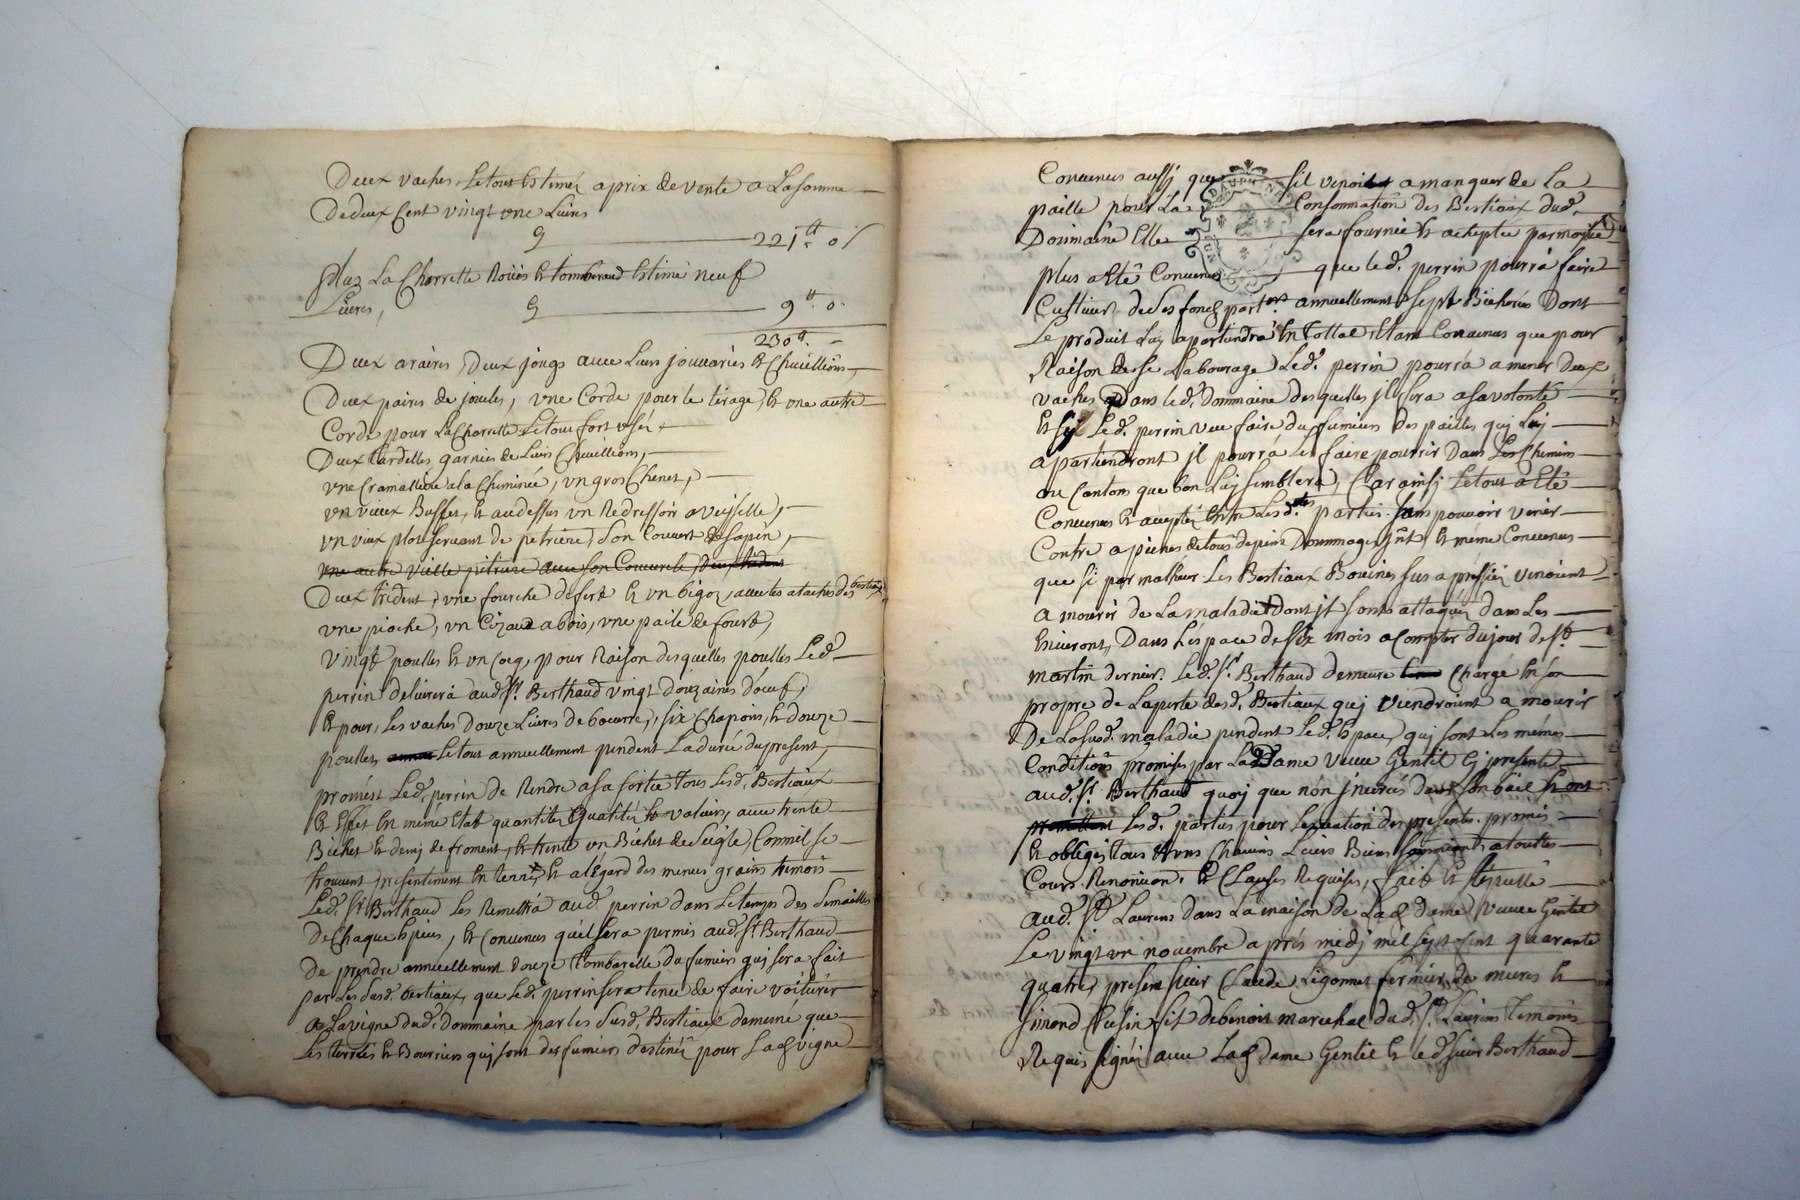 Deux vaches, Le tout Estimé a prix de vente a La Somme
De deux Cent vingt une Livres
221tt 0s
Plus La Charrette Roües Et tomberaud Estimé neuf
Livres,
9tt 0
230tt
Deux araires, Deux jougs avec Leurs jouuaries Et Cheuillions,
Deux paires de joucles, vne Corde pour le tirage, Et vne autre
Corde pour La Charrette Le tout fort vsé,
Deux tardelles garnies de Leurs Cheuillions,
vne Cramalliere a la Cheminée, vn gros Chenet,
vn vieux Buffet, Et au dessus vn Redressoir a Veisselle,
vn vieux plot seruant de petriere, Son Couvert de Sapin,
vne autre vielle petriere avec son Couuercle, Deux tridents
Deux trident, vne fourche de fert Et vn bigoz, avec les ataches des bestiaux
vne pioche, vn Cizaud a bois, vne paile de fourt,
Vingt poulles Et vn Coq, pour Raison des quelles poulles Led.
perrin deliurera aud. Sr. Berthaud vingt douzaines d'oeuf,
Et pour Les vaches douze Liures de beurre, six Chapons, Et douze
poullets, Le tout annuellement pendent La durée du present,
promest Led. perrin de Rendre a sa sortie tous Lesd. Bestiaux
Et Effet En même Etat quantité Equalité Et valeur, avec trente
Bichet Et demj de froment, Et trente vn Bichet de Seigle, Comme il se
trouvent presentement En terre, Et a l'Egard des menues grains tremois
Led. Sr. Berthaud Les Remettra aud. perrin dans Le temps des Semailles
De Chaque Espece, Et Convenus quil sera permis aud. Sr. Berthaud
de prendre annuellement douze tombarellé du fumier quj sera fait
par Les Susd. bestiaux, que Led. perrin sera tenu de faire voiturer
a La vigne dud. Dommaine par les Susd. Bestiaux dememe que
Les terrées Et Bourriers quj sont des fumiers destiné pour Lad. vigne
Convenus aussj que S'il venoit a manquer de La
paille pour La Consommation des Bestiaux dud.
Dommaine Elle sera fournie Et achepté par moitié
plus a Eté Convenus que led. perrin pourra faire
Cultiuer de Ses fonds part.ers annuellement Sept Bicherées Dont
Le produit Luj apartiendra En Tottal Etant Convenus que pour
Raison de se Labourage Led. perrin pourra amener Deux
vaches Dans led. Dommaine des quelles jl sera a sa volonté
Et sy Led. perrin veu faire du fumiers Des pailles quj Luj
apartiendront jl pourra Les faire pourrir Dans Les Chemins
ou Cantons que bon Luj semblera, Car ainsj Le tout a Eté
Convenus Et accepté Entre Lesd. parties Sans pouvoir venir
Contre a peines de tous depens Dommages jnt. Et même Convenus
que si par malheur Les Bestiaux Bouines sus apressiés venoient
a mourir de La maladie Dont jl sont attaqués dans Les
Enuirons, Dans L'espace de six mois a Compter du jour de St.
martin dernier. Led. Sr. Berthaud demeure Chargé En son
propre de La perte desd. Bestiaux quj viendroient a mourir
De La susd. maladie pendent Led. Espace, quj sont Les mémes
Conditions promises par La Dame veuve Gentil Cj presente
aud. Sr. Berthaud quoj que non jnserés dans son bail
Lesd. parties pour L'execution des presente. promis
Et obligés tous Leurs Biens a touttes
Cours. Renoncion. Et Clauses Requises, Fait Et stipullé
aud. St. Laurens dans La maison de Lad. dame veuve Gentil
Le vingt vn novembre aprés midj mil sept Cent quarante
quatre, present sieur Claude Ligonnet fermier de mures Et
simond Cusin dit debenoit marechal dud. St. Laurens temoins
Requis signés avec Lad. dame Gentil Et led. sieur Berthaud